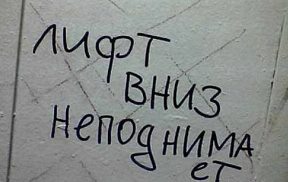 лифт
вниз
неподнима
ет